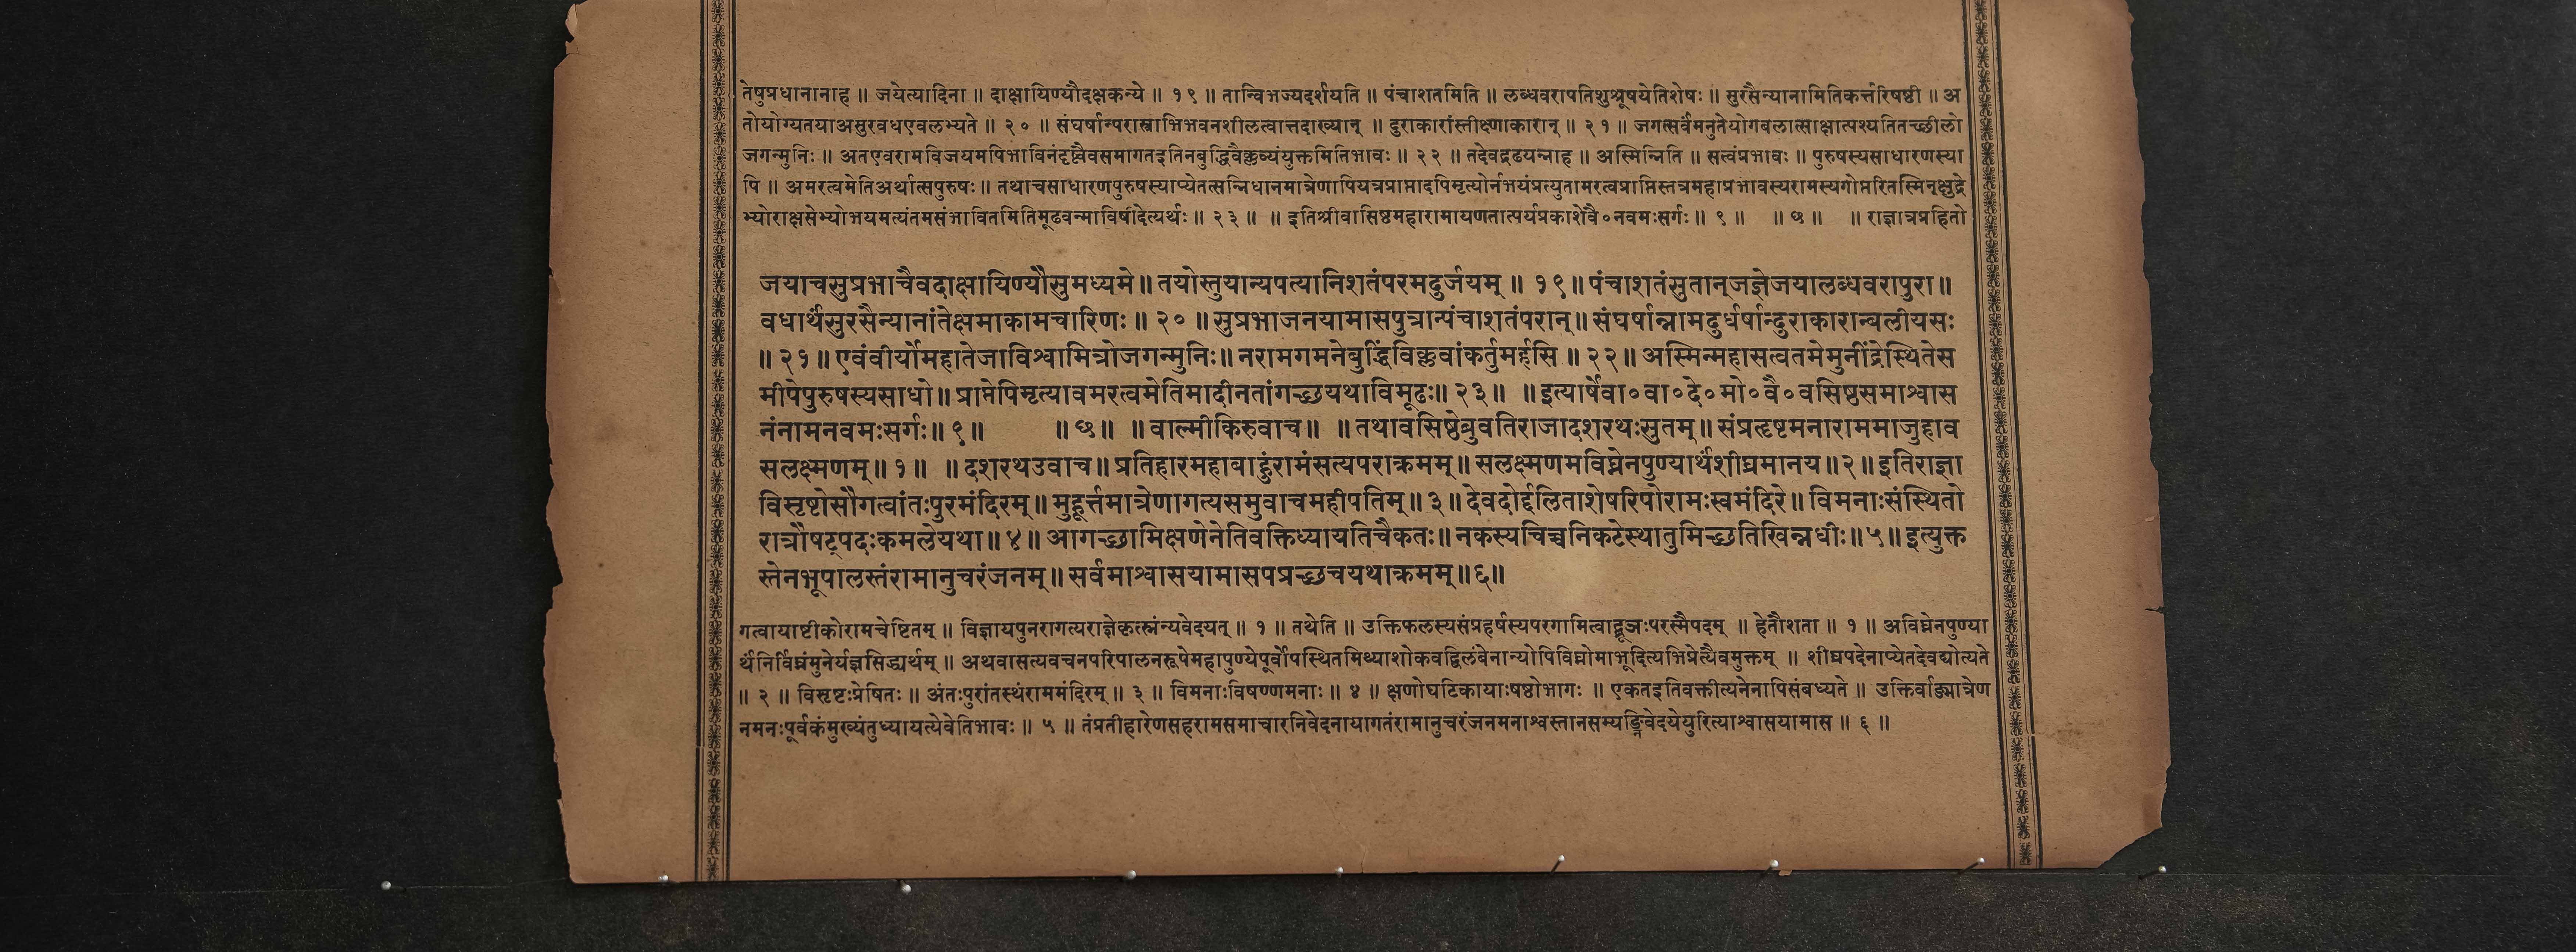 तेषुप्रधानानाह ॥ जयेत्यादिना ॥ दाक्षायिण्यौदक्षकन्ये ॥ १९ ॥ तान्विभज्यदर्शयति ॥ पंचाशतमिति ॥ लब्धवरापतिशुश्रूषयेतिशेषः ॥ सुरसैन्यानामितिकर्त्तरिषष्ठी ॥ अ
तोयोग्यतयाअसुरवधएवलभ्यते ॥ २० ॥ संघर्षान्परास्त्राभिभवनशीलत्वात्तदाख्यान् ॥ दुराकारांस्तीक्ष्णाकारान् ॥ २१ ॥ जगत्सर्वंमनुतेयोगबलात्साक्षात्पश्यतितच्छीलो
जगन्मुनिः ॥ अतएवरामविजयमपिभाविनंदृष्ट्वैवसमागतइतिनबुद्धिवैक्लव्यंयुक्तमितिभावः ॥ २२ ॥ तदेवद्रढयन्नाह ॥ अस्मिन्निति ॥ सत्वंप्रभावः ॥ पुरुषस्यसाधारणस्या
पि ॥ अमरत्वमेतिअर्थात्सपुरुषः ॥ तथाचसाधारणपुरुषस्याप्येतत्सन्निधानमात्रेणापियत्रप्राप्तादपिमृत्योर्नभयंप्रत्युतामरत्वप्राप्तिस्तत्रमहाप्रभावस्यरामस्यगोप्तरितस्मिन्क्षुद्रे
भ्योराक्षसेभ्योभयमत्यंतमसंभावितमितिमूढवन्माविषीदेत्यर्थः ॥ २३ ॥ ॥ इतिश्रीवासिष्ठमहारामायणतात्पर्यप्रकाशेवै०नवमःसर्गः ॥ ९ ॥ ॥ ७ ॥ ॥ राज्ञात्रप्रहितो
जयाचसुप्रभाचैवदाक्षायिण्यौसुमध्यमे ॥ तयोस्तुयान्यपत्यानिशतंपरमदुर्जयम् ॥ १९ ॥ पंचाशतंसुतान्जज्ञेजयालब्धवरापुरा ॥
वधार्थंसुरसैन्यानांतेक्षमाकामचारिणः ॥ २० ॥ सुप्रभाजनयामासपुत्रान्पंचाशतंपरान् ॥ संघर्षान्नामदुर्धर्षान्दुराकारान्बलीयसः
॥ २१ ॥ एवंवीर्योमहातेजाविश्वामित्रोजगन्मुनिः ॥ नरामगमनेबुद्धिंविक्लवांकर्तुमर्हसि ॥ २२ ॥ अस्मिन्महासत्वतमेमुनींद्रेस्थितेस
मीपेपुरुषस्यसाधो ॥ प्राप्तेपिमृत्यावमरत्वमेतिमादीनतांगच्छयथाविमूढः ॥ २३ ॥ ॥ इत्यार्षेवा०वा०दे०मो०वै०वसिष्ठसमाश्वास
नंनामनवमःसर्गः ॥ ९ ॥ ॥ ७ ॥ ॥ वाल्मीकिरुवाच ॥ ॥ तथावसिष्ठेब्रुवतिराजादशरथःसुतम् ॥ संप्रहृष्टमनाराममाजुहाव
सलक्ष्मणम् ॥ १ ॥ ॥ दशरथउवाच ॥ प्रतिहारमहाबाहुंरामंसत्यपराक्रमम् ॥ सलक्ष्मणमविघ्नेनपुण्यार्थंशीघ्रमानय ॥ २ ॥ इतिराज्ञा
विसृष्टोसौगत्वांतःपुरमंदिरम् ॥ मुहूर्त्तमात्रेणागत्यसमुवाचमहीपतिम् ॥ ३ ॥ देवदोर्द्दलिताशेषरिपोरामःस्वमंदिरे ॥ विमनाःसंस्थितो
रात्रौषट्पदःकमलेयथा ॥ ४ ॥ आगच्छामिक्षणेनेतिवक्तिध्यायतिचैकतः ॥ नकस्यचिच्चनिकटेस्थातुमिच्छतिखिन्नधीः ॥ ५ ॥ इत्युक्त
स्तेनभूपालस्तंरामानुचरंजनम् ॥ सर्वमाश्वासयामासपप्रच्छचयथाक्रमम् ॥ ६ ॥
गत्वायाष्टीकोरामचेष्टितम् ॥ विज्ञायपुनरागत्यराज्ञेकृत्स्नंन्यवेदयत् ॥ १ ॥ तथेति ॥ उक्तिफलस्यसंप्रहर्षस्यपरगामित्वाद्ब्रूञःपरस्मैपदम् ॥ हेतौशता ॥ १ ॥ अविघ्नेनपुण्या
र्थंनिर्विघ्नंमुनेर्यज्ञसिद्ध्यर्थम् ॥ अथवासत्यवचनपरिपालनरूपेमहापुण्येपूर्वोपस्थितमिथ्याशोकवद्विलंबेनान्योपिविघ्नोमाभूदित्यभिप्रेत्यैवमुक्तम् ॥ शीघ्रपदेनाप्येतदेवद्योत्यते
॥ २ ॥ विसृष्टःप्रेषितः ॥ अंतःपुरांतस्थंराममंदिरम् ॥ ३ ॥ विमनाःविषण्णमनाः ॥ ४ ॥ क्षणोघटिकायाःषष्ठोभागः ॥ एकतइतिवक्तीत्यनेनापिसंबध्यते ॥ उक्तिर्वाङ्मात्रेण
नमनःपूर्वकंमुख्यंतुध्यायत्येवेतिभावः ॥ ५ ॥ तंप्रतीहारेणसहरामसमाचारनिवेदनायागतंरामानुचरंजनमनाश्वस्तानसम्यङ्निवेदयेयुरित्याश्वासयामास ॥ ६ ॥